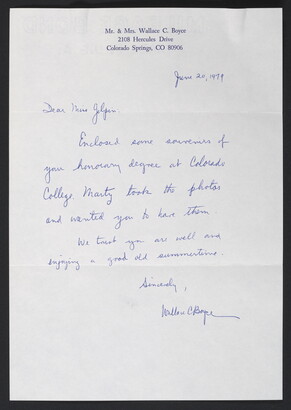 Mr. & Mrs. Wallace C. Boyce
2108 Hercules Drive
Colorado Springs, CO 80906
June 20, 1979
Dear Miss Gilpin
Enclosed some souvenirs of
your honorary degree at Colorado
College. Marty took the photos
and wanted you to have them
We trust you are well and
enjoying a good old summertime.
Sincerely,
Wallace C Boyce